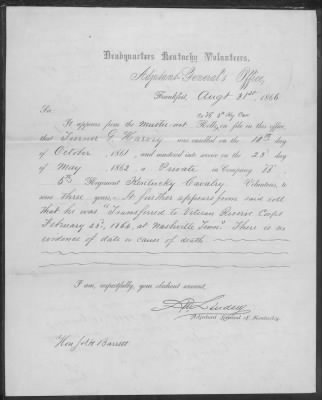 Headquarters Kentucky Volunteers,
Adjutant-General's Office,
Frankfort, Augt 31st, 1866
Sir:
Co "K" 5" Ky Cav
It appears from the muster-out Rolls, on file in this office,
that G. Harvey was enrolled on the 10th day
of October, 1861, and mustered into service on the 25 day
of May 1862, a Private in Company "K"
5th Regiment Kentucky Cavalry Volunteers, to
serve three years. It further appears from said roll
that he was "Transferred to Veteran Reserve Corps
February 25", 1864, at Nashville Tenn". There is no
evidence of date or cause of death
I am, respectfully, your obedient servant,
D W Lindsey
Adjutant General of Kentucky.
Hon Jos H Barrett